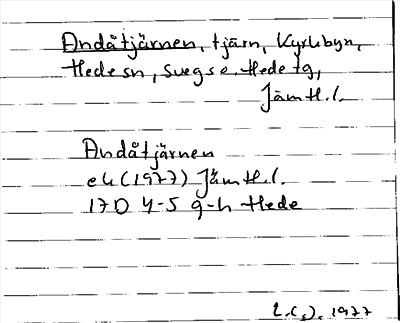 Andåtjärnen, tjärn, Kyrkbyn,
Hede sn, Svegs e. Hede tg,
Jämtl.l.
Andåtjärnen
ek (1977) Jämtl.l.
17D 4-5 g-h Hede
1977